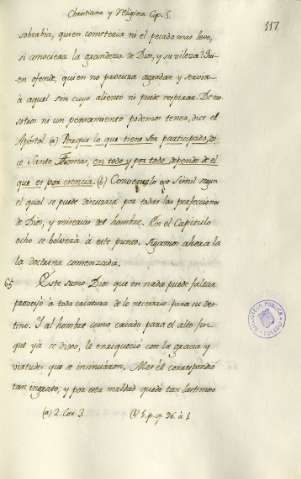 Christiana y Religiosa Cap. 5.
117
sabrahia, quien cometeria ni el pecado mas leve,
si conociera la grandeza de Dios, y su vileza?
en ofende, quien no procura agradar y servir
à aquel sin cuyo aliento ni puede respirar. De no
sotros ni un pensamiento podemos tener, dice el
Apóstol (a) Porque lo que tiene ser participado, di
ce Santo Thomas, en todo y por todo depende de el
que es por esencia. (b) Convence lo un Simil segun
el qual se puede discurrir por todas las perfecciones
de Dios, y miserias del hombre. En el Capitulo
ocho se bolverà à este punto. Sigamos ahora la
la doctrina comenzada.
Este sumo Dios que en nada puede faltar
proveyò à toda criatura de lo necesario para su des
tino. Y al hombre como criado para el alto fin
que ya se dixo, le enriqueciò con la gracia y
virtudes que se insinuaron. Mas èl correspondiò
tan ingrato, y por esta maldad quedò tan lastimoso
(a) 2. Cor. 3.
(b) 1. p. q. 96. à 1.